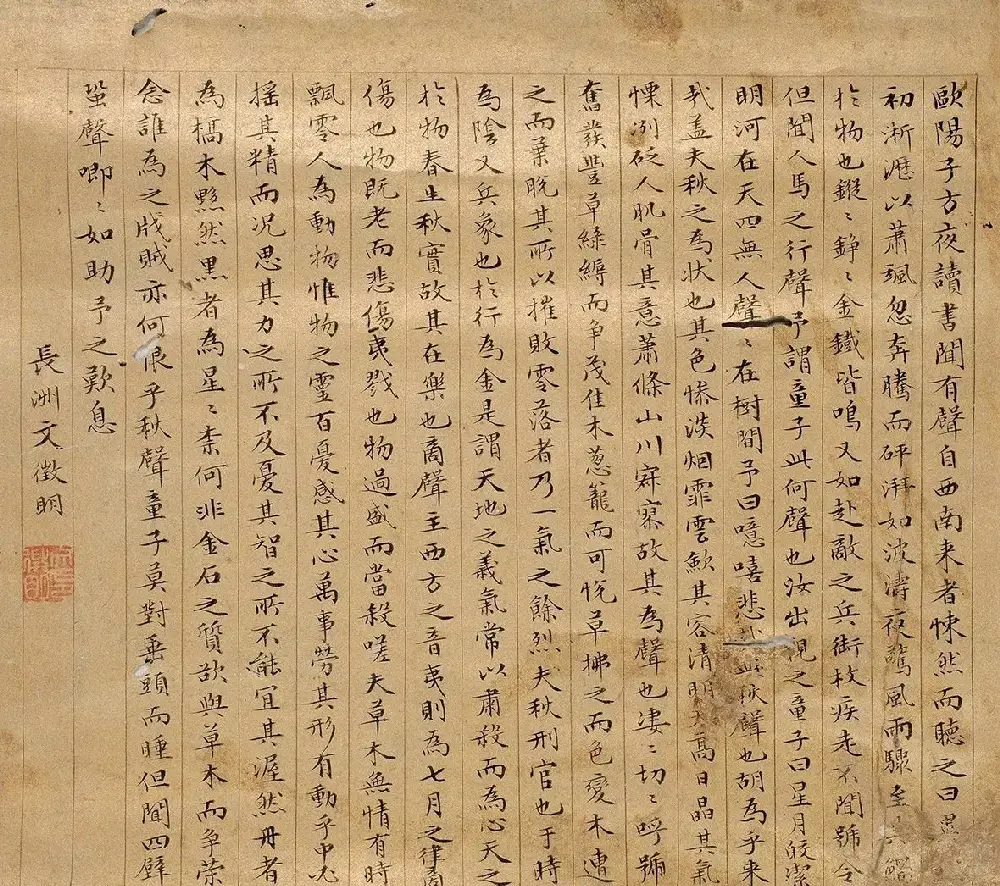 歐陽子方夜讀書聞有聲自西南来者悚然而聽之曰異
初淅瀝以蕭颯忽奔騰而砰湃如波濤夜驚風雨驟至其觸
於物也鏦〻錚〻金鐵皆鳴又如赴敵之兵銜枚疾走不聞號令
但聞人馬之行聲予謂童子此何聲也汝出視之童子曰星月皎潔
明河在天四無人聲〻在樹間予曰噫嘻悲哉此秋聲也胡為乎来
哉盖夫秋之為状也其色惨淡烟霏雲歛其容清明天高日晶其氣
慄冽砭人肌骨其意蕭條山川寂寥故其為聲也凄〻切〻呼號
奮發豐草綠縟而争茂佳木葱蘢而可悅草拂之而色變木遭
之而葉脫其所以摧敗零落者乃一氣之餘烈夫秋刑官也于時
為陰又兵象也於行為金是謂天地之義氣常以肅殺而為心天之
於物春生秋實故其在樂也商聲主西方之音夷則為七月之律商
傷也物既老而悲傷夷戮也物過盛而當殺嗟夫草木無情有時
飄零人為動物惟物之靈百憂感其心萬事勞其形有動乎中必
摇其精而況思其力之所不及憂其智之所不能宜其渥然丹者
為槁木黟然黑者為星〻柰何非金石之質欲與草木而争榮
念誰為之戕賊亦何恨乎秋聲童子莫對垂頭而睡但聞四壁
蛩聲唧〻如助予之歎息
長洲文徵明